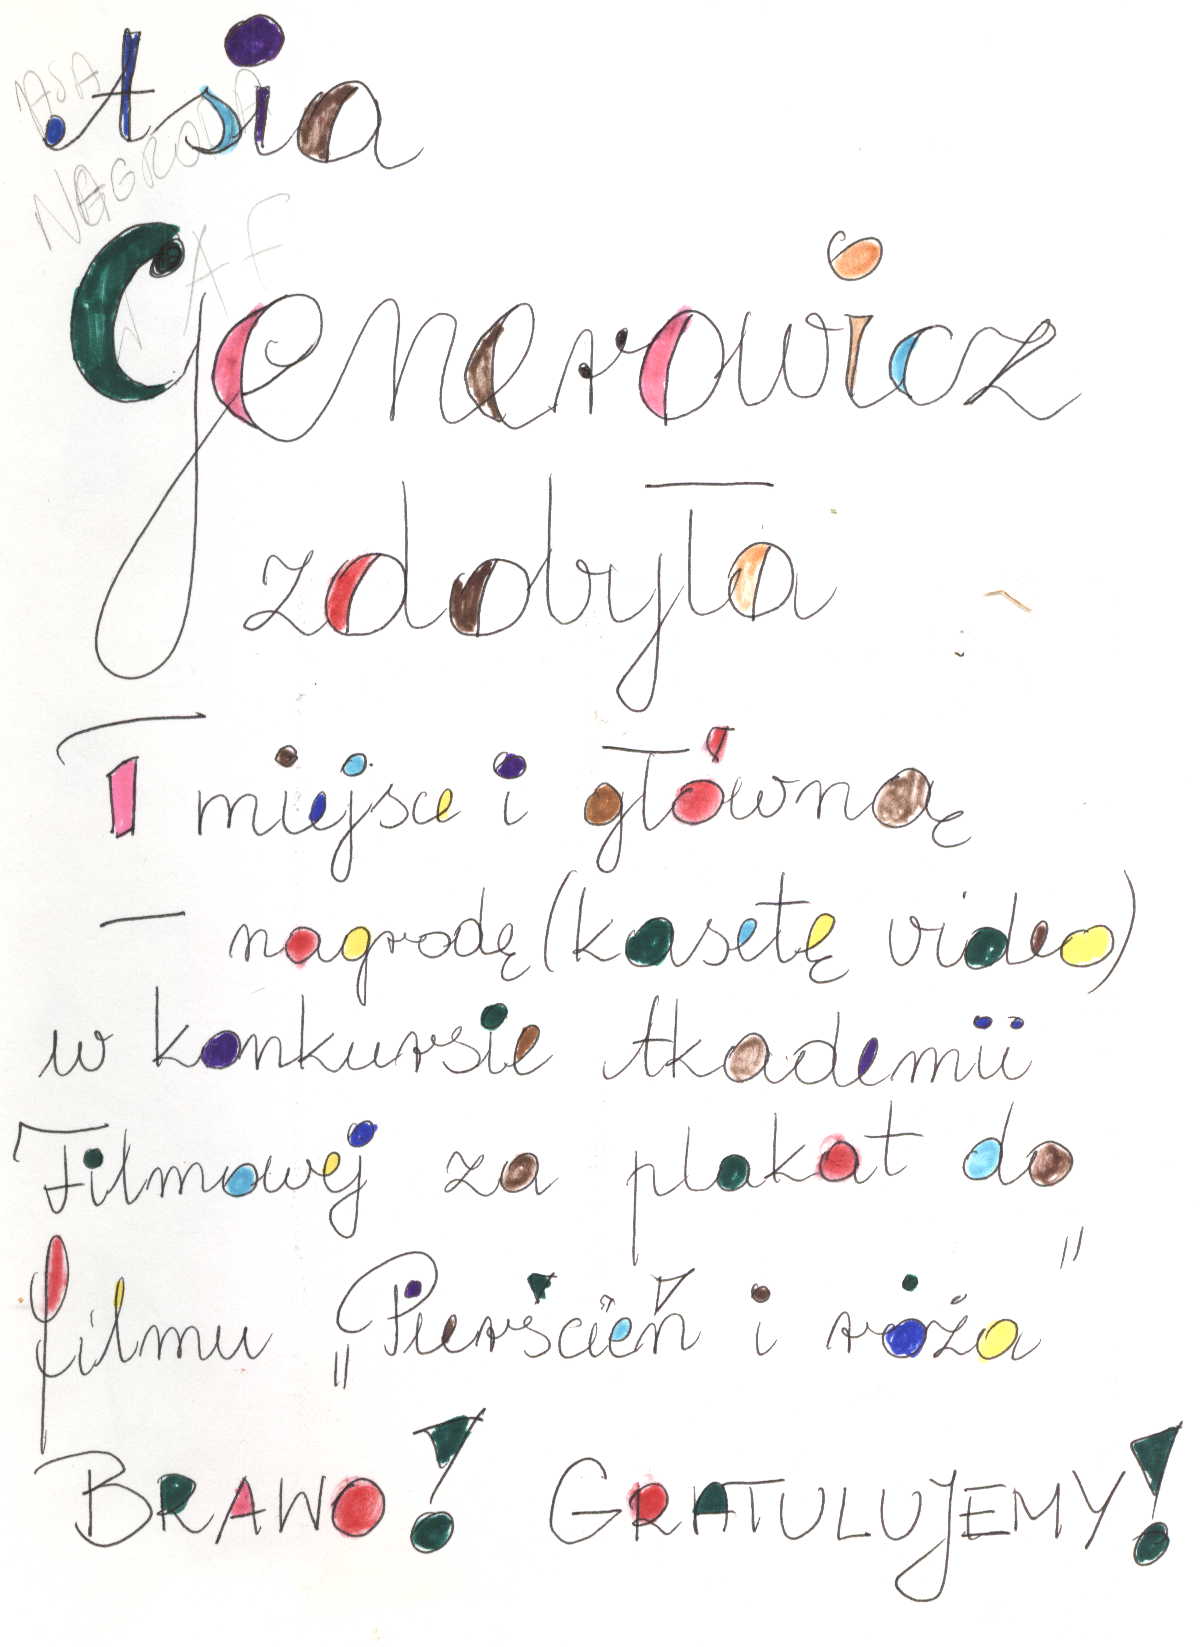 ASA
NAGRODA
AF
Asia
Generowicz
zdobyła
I miejsce i główną
nagrodę (kasetę video)
w konkursie Akademii
Filmowej za plakat do
filmu „Pierścień i róża"
BRAWO! GRATULUJEMY!